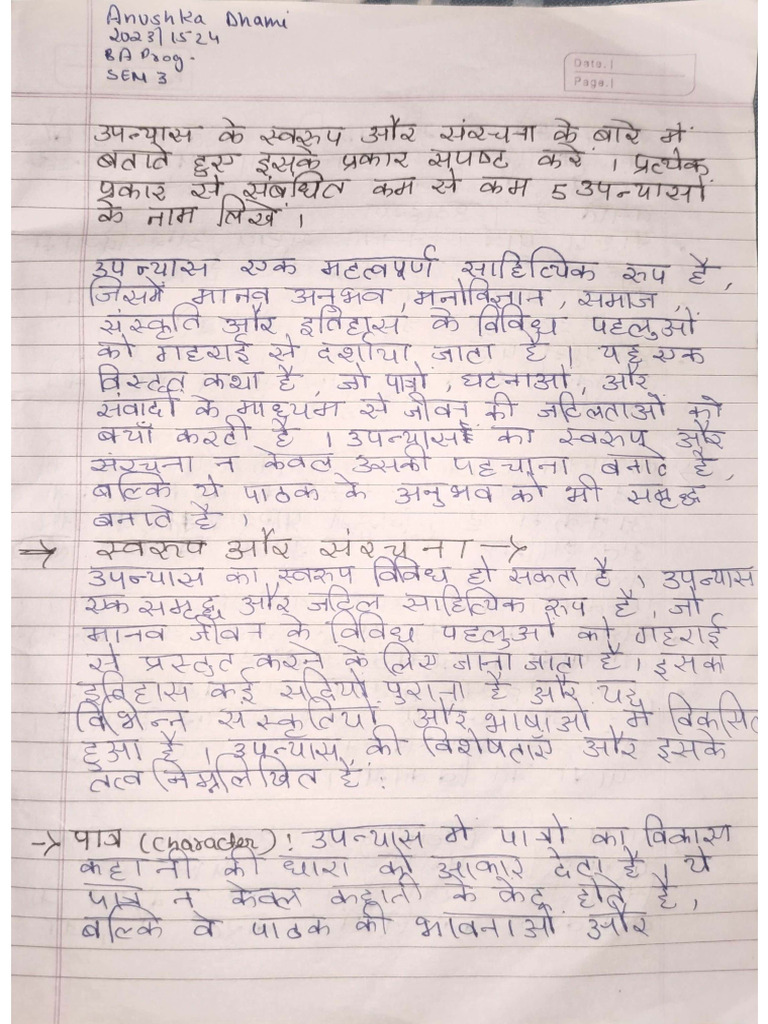 Anushka Dhami
2023/1524
BA Prog.
SEM 3
Date.|
Page.|
उपन्यास के स्वरूप और संरचना के बारे में
बताते हुए इसके प्रकार सपष्ट करें । प्रत्येक
प्रकार से संबधित कम से कम 5 उपन्यासों
के नाम लिखें ।
उपन्यास एक महत्वपूर्ण साहित्यिक रूप है,
जिसमें मानव अनुभव, मनोविज्ञान, समाज,
संस्कृति और इतिहास के विविध पहलुओं
को गहराई से दर्शाया जाता है । यह एक
विस्तृत कथा है, जो पात्रों, घटनाओं, और
संवादों के माध्यम से जीवन की जटिलताओं को
बयाँ करती है । उपन्यास का स्वरूप और
संरचना न केवल उसकी पहचाना बनाते है,
बल्कि ये पाठक के अनुभव को भी समृद्ध
बनाते है ।
⇒ स्वरूप और संरचना →
उपन्यास का स्वरूप विविध हो सकता है । उपन्यास
एक समृद्ध और जटिल साहित्यिक रूप है, जो
मानव जीवन के विविध पहलुओं को गहराई
से प्रस्तुत करने के लिए जाना जाता है । इसका
इतिहास कई सदियों पुराना है और यह
विभिन्न संस्कृतियों और भाषाओं में विकसित
हुआ है । उपन्यास की विशेषताएँ और इसके
तत्व निम्नलिखित है:
→ पात्र (Character) : उपन्यास मे पात्रों का विकास
कहानी की धारा को आकार देता है । ये
पात्र न केवल कहानी के केंद्र होते है,
बल्कि वे पाठक की भावनाओं और